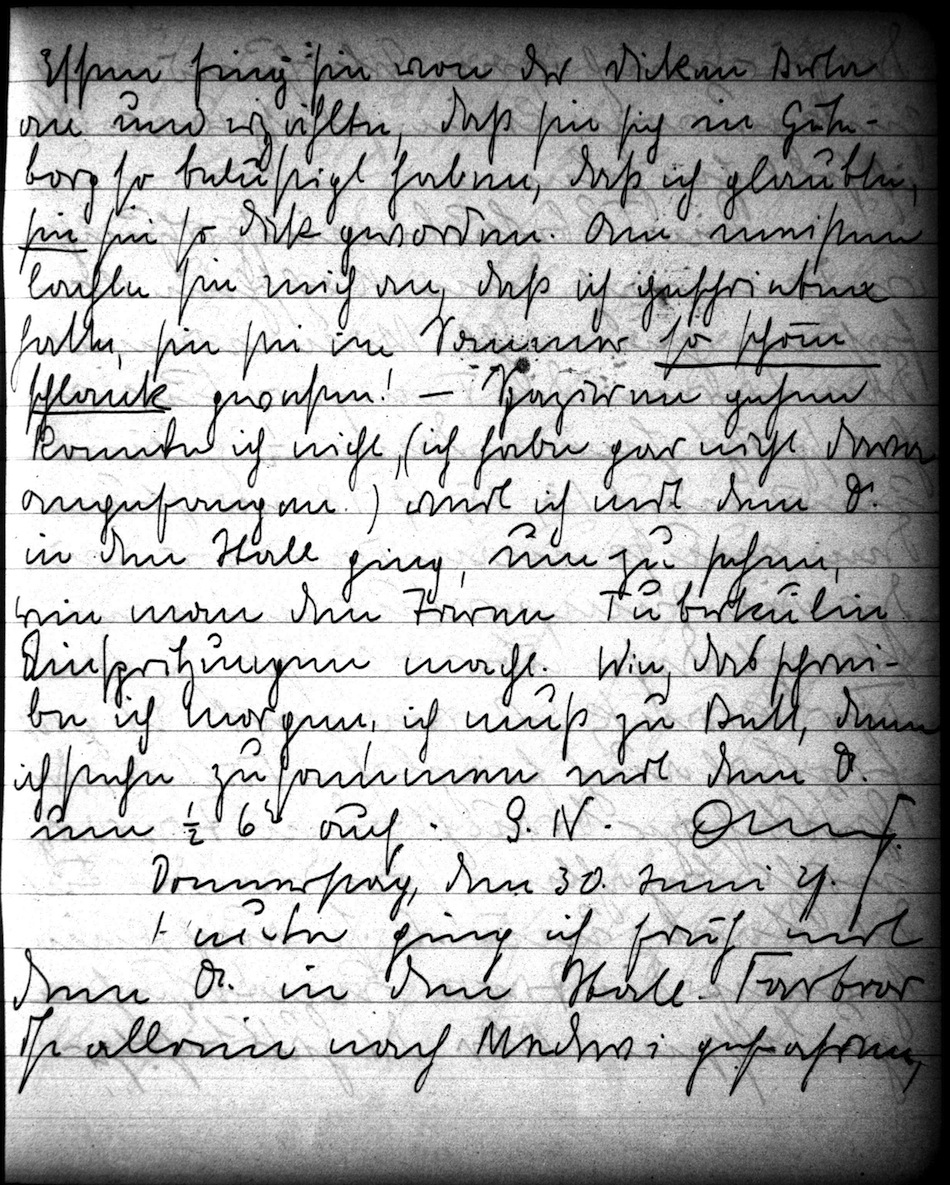 Essen fing sie von der dicken Berta
an und erzählte, daß sie sich in Göte-
borg so belustigt haben, daß ich glaubte,
sie sei so dick geworden. Am meisten
lachte sie mich an, daß ich geschrieben
hatte, sie sei im Sommer so schön
schlank gewesen! – Spazieren gehen
konnte ich nicht, (ich habe gar nicht davon
angefangen.) weil ich mit dem O.
in den Stall ging, um zu sehen,
wie man den Tieren Tuberkulin
Einspritzungen macht. Wie, das schrei-
be ich morgen, ich muß zu Bett, denn
ich stehe zusammen mit dem O.
um ½ 6 auf. G. N.
Donnerstag, den 30. Juni 21.
Heute ging ich früh mit
dem O. in den Stall. Farbror
ist allein nach Medevi gefahren,